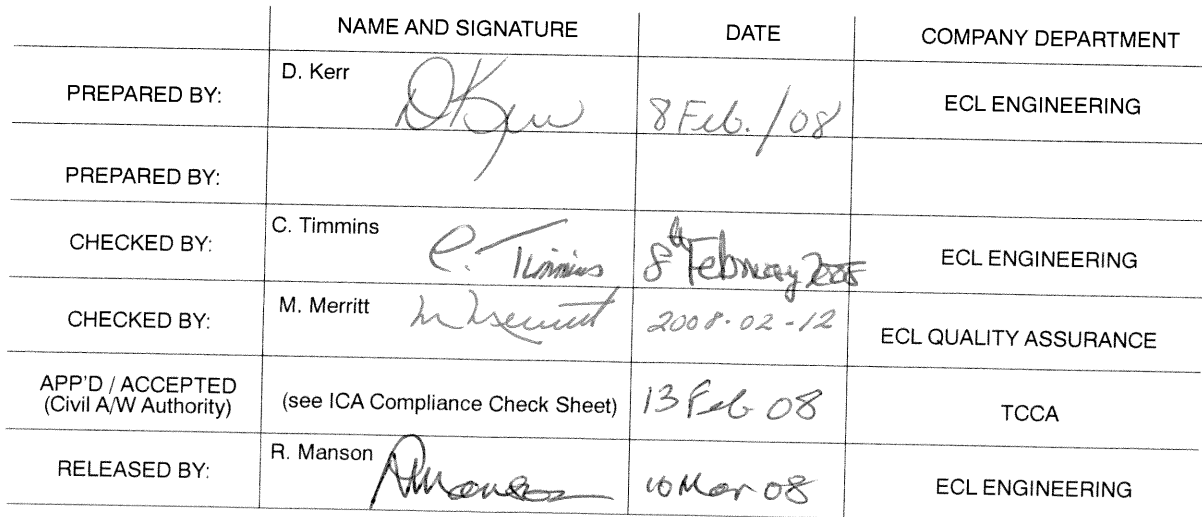 NAME AND SIGNATURE DATE COMPANY DEPARTMENT
PREPARED BY: D. Kerr DKerr 8 Feb. / 08 ECL ENGINEERING
PREPARED BY:
CHECKED BY: C. Timmins C. Timmins 8th February 2008 ECL ENGINEERING
CHECKED BY: M. Merritt M Merritt 2008-02-12 ECL QUALITY ASSURANCE
APP'D / ACCEPTED
(Civil A/W Authority) (see ICA Compliance Check Sheet) 13 Feb 08 TCCA
RELEASED BY: R. Manson RManson 10 Mar 08 ECL ENGINEERING